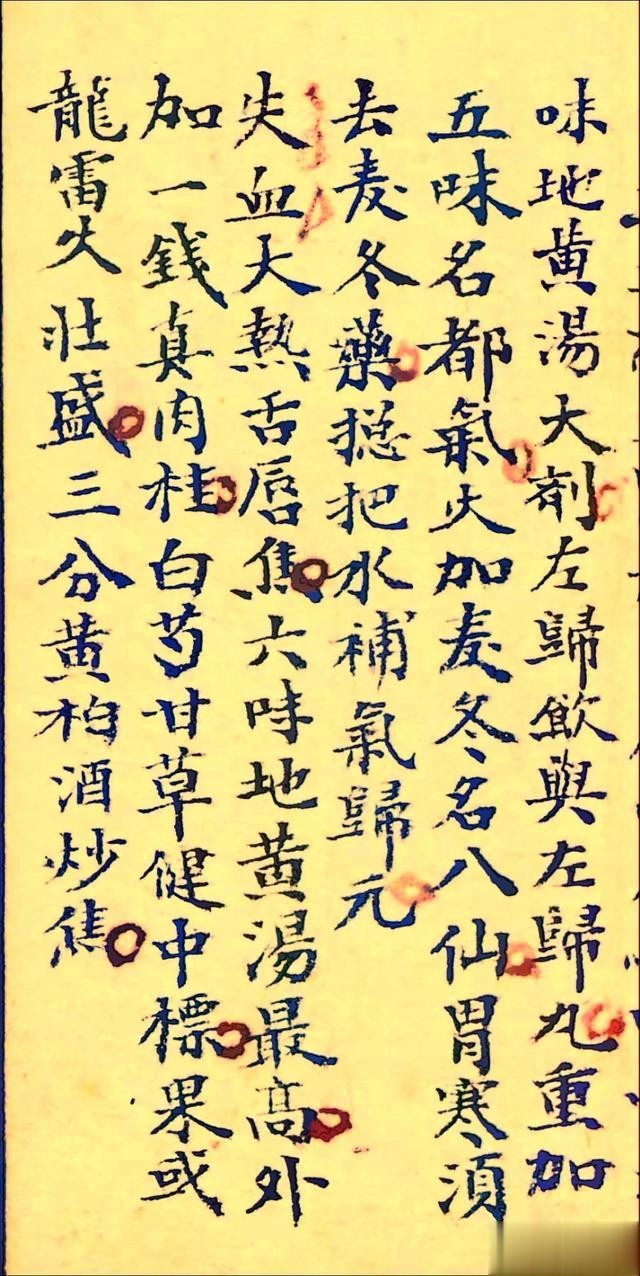 味地黄湯大剤左歸飲與左歸九重加
五味名都氣火加麦冬名八仙胃寒須
去麦冬藥揔把水補氣歸元
失血大熱舌唇焦六味地黄湯最高外
加一錢真肉桂白芍甘草健中標果或
龍雷火壯盛三分黄柏酒炒焦